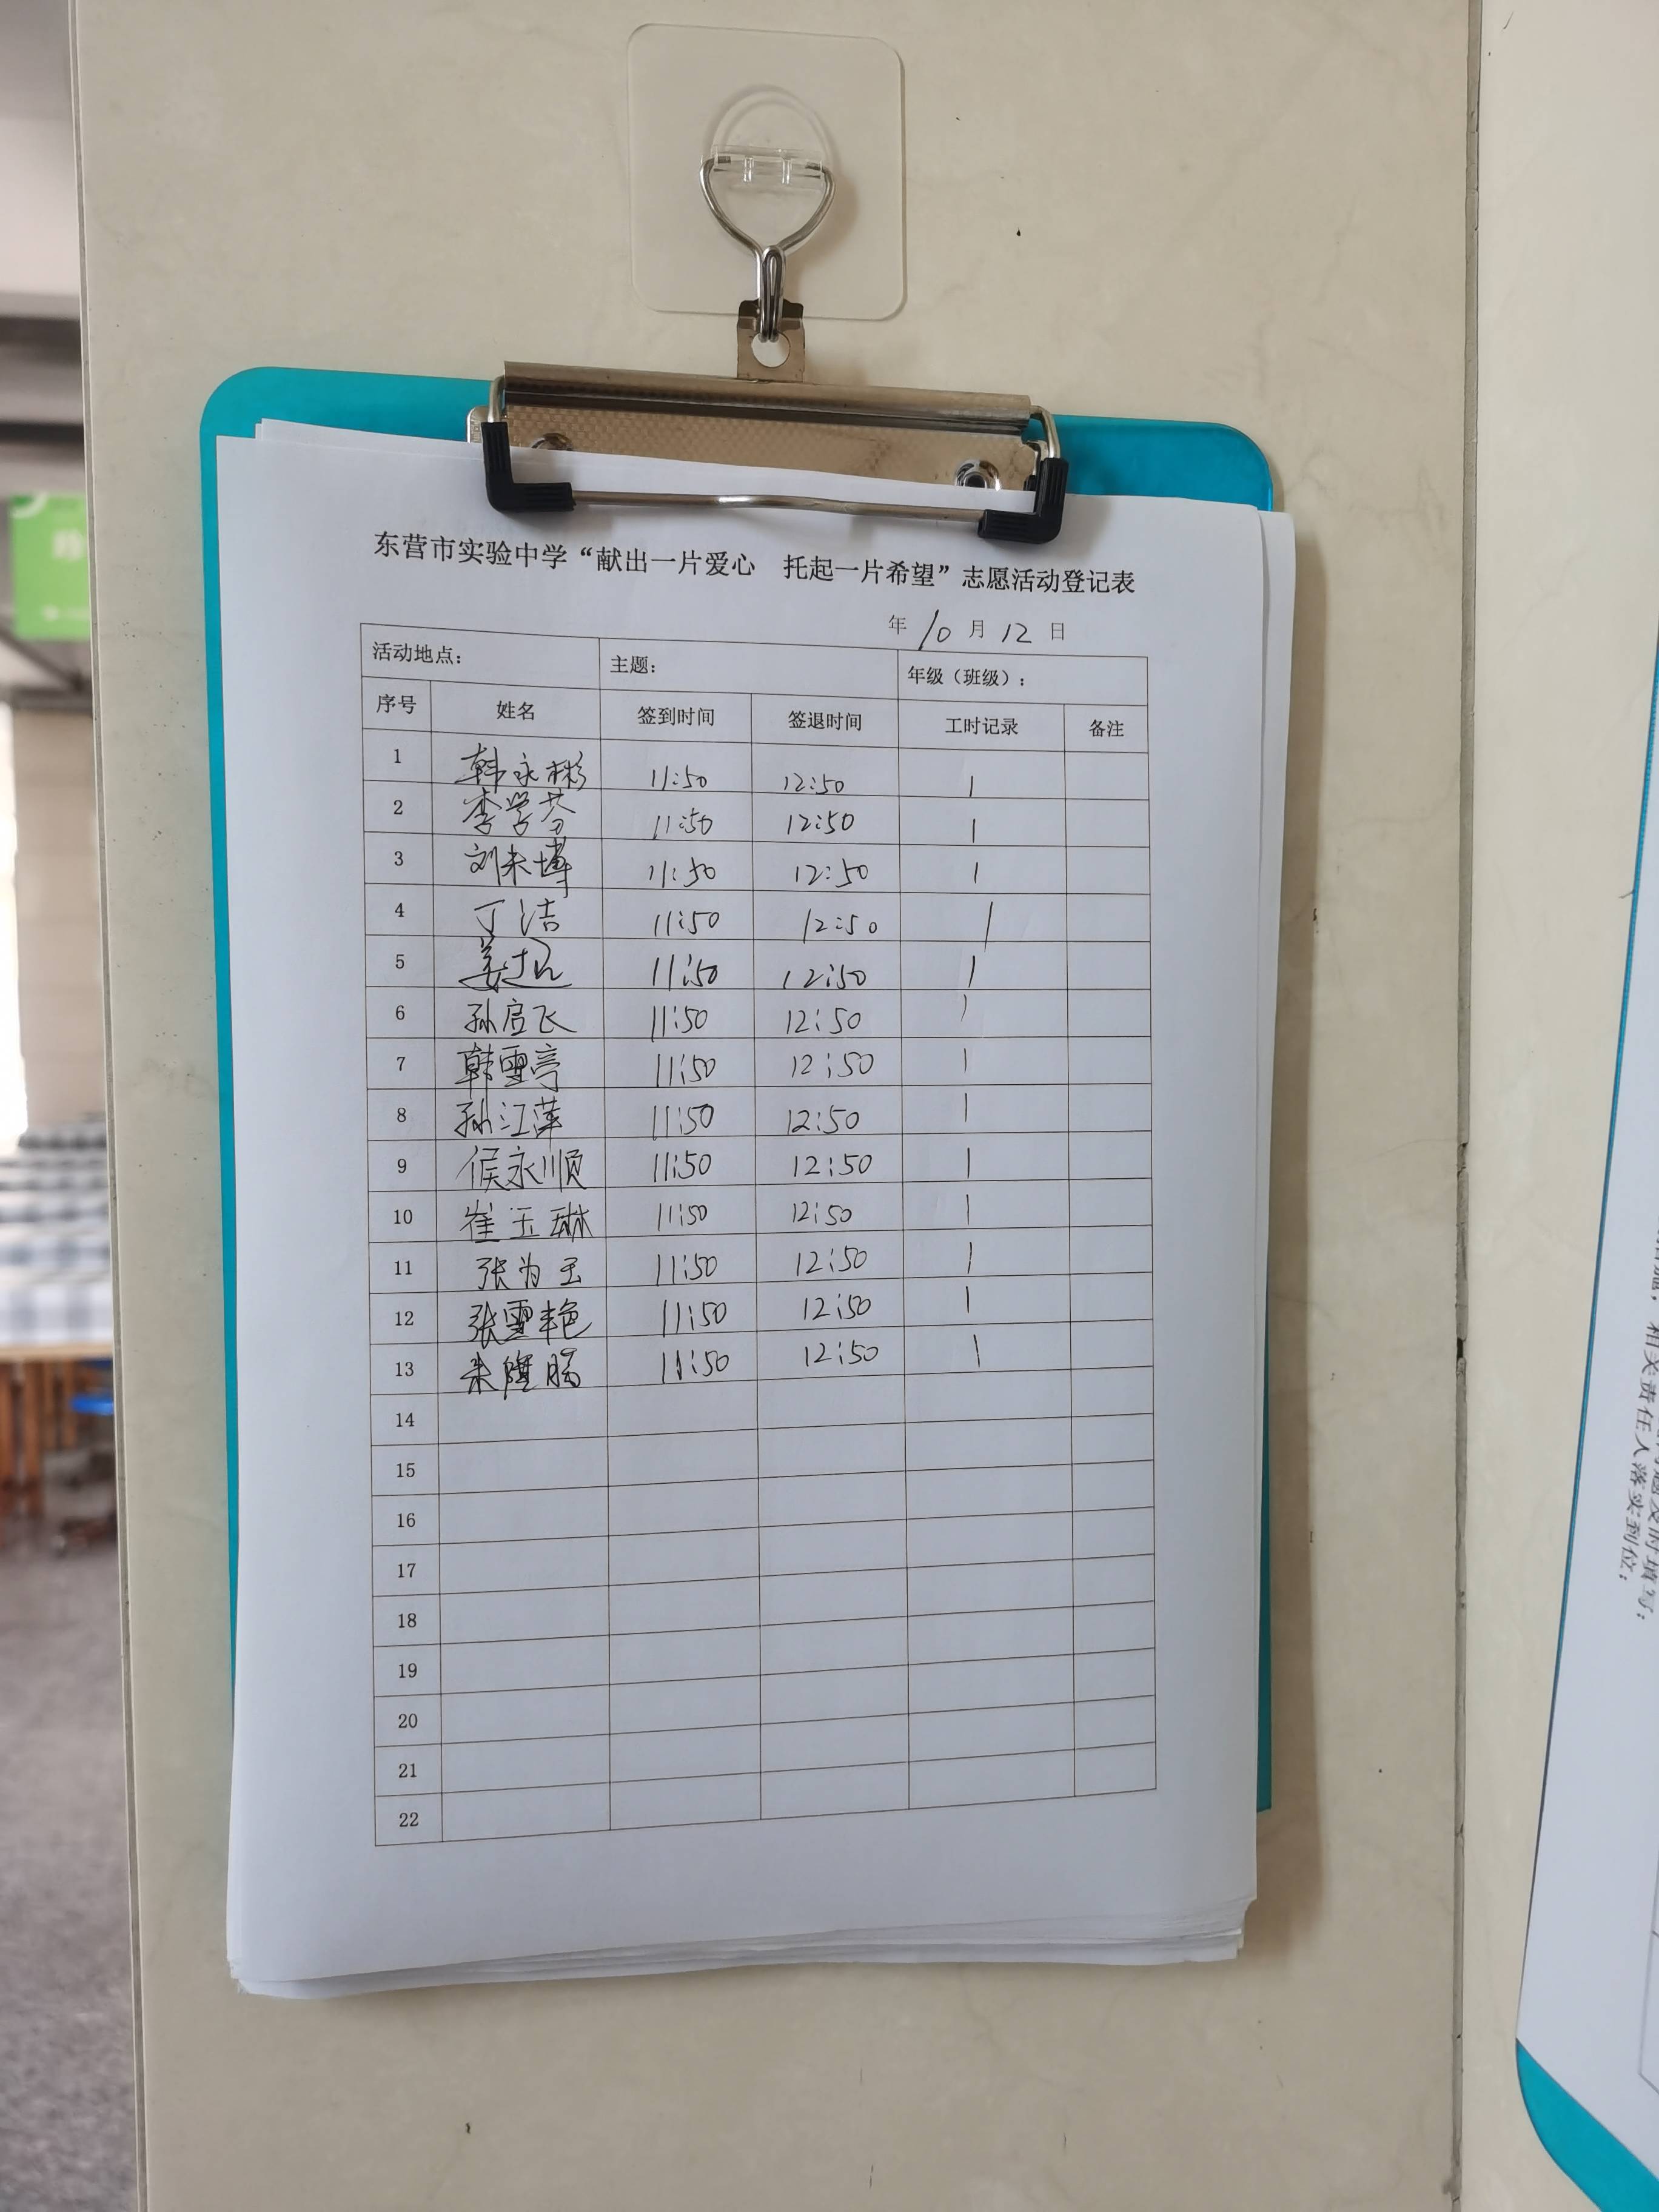 东营市实验中学“献出一片爱心 托起一片希望”志愿活动登记表
年 10 月 12 日
活动地点： 主题： 年级（班级）：
序号 姓名 签到时间 签退时间 工时记录 备注
1 韩永彬 11:50 12:50 1
2 李学芬 11:50 12:50 1
3 刘来博 11:50 12:50 1
4 丁洁 11:50 12:50 1
5 姜超 11:50 12:50 1
6 孙启飞 11:50 12:50 1
7 韩雪亭 11:50 12:50 1
8 孙江萍 11:50 12:50 1
9 侯永顺 11:50 12:50 1
10 崔玉琳 11:50 12:50 1
11 张为玉 11:50 12:50 1
12 张雪艳 11:50 12:50 1
13 隆腾 11:50 12:50 1
14
15
16
17
18
19
20
21
22
及时填写；
相关责任人落实到位；